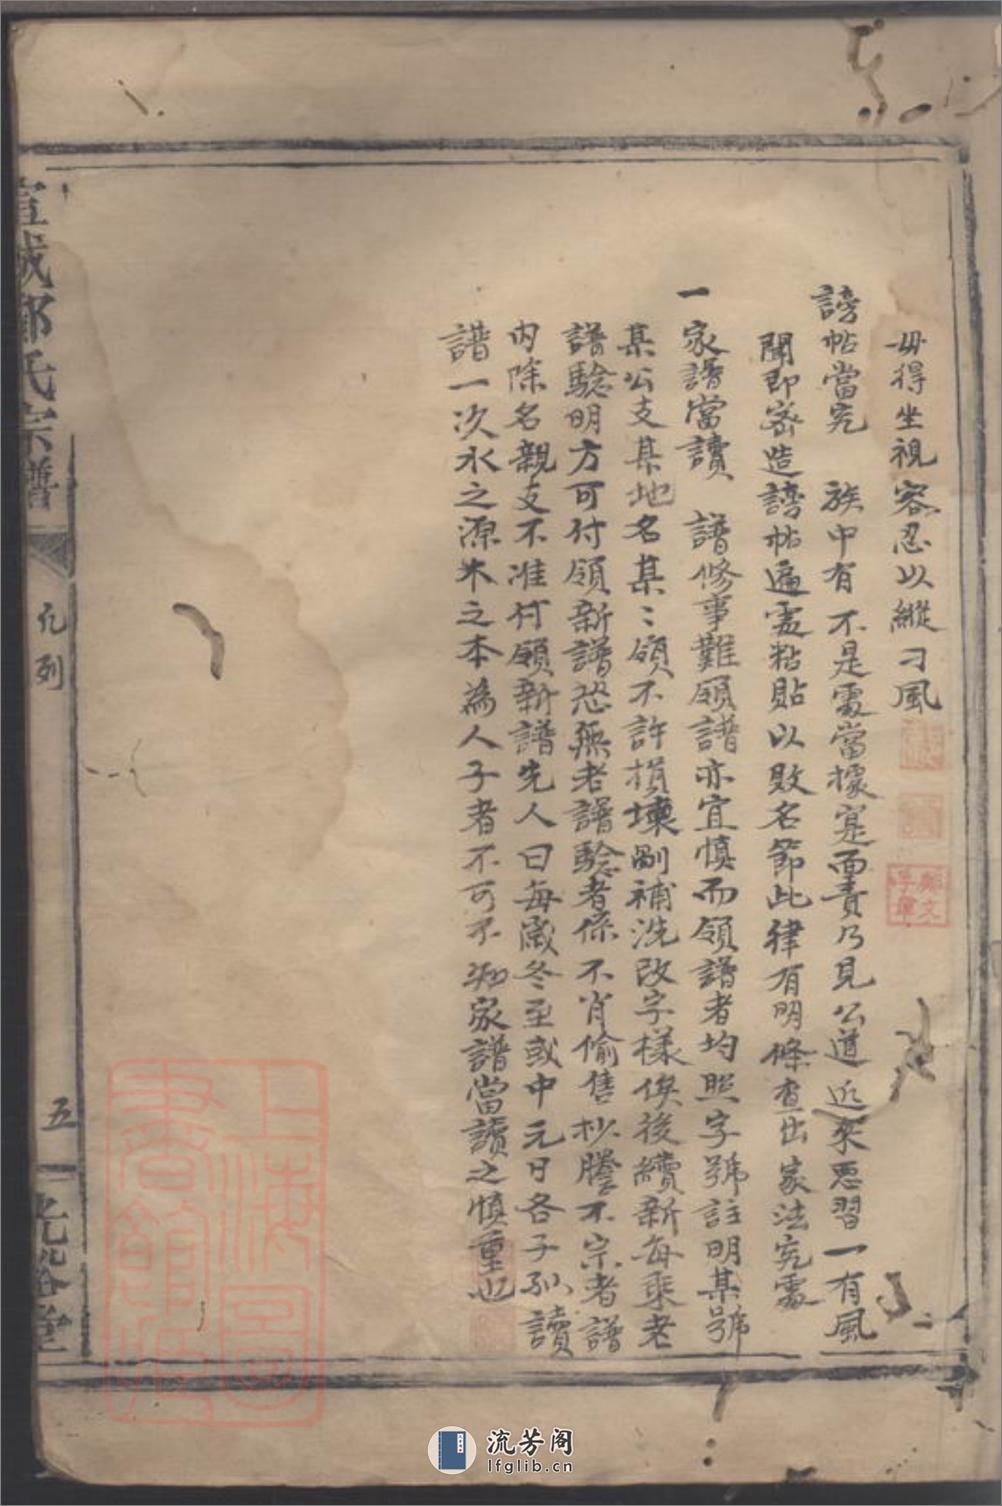 毋得坐視容忍以縱刁風
謗帖當究　族中有不是處當據寔面責乃見公道近來惡習一有風
聞即密造謗帖遍處粘貼以敗名節此律有明條查出家法究處
一家譜當讀　譜修事難領譜亦宜慎而領譜者均照字號註明某號
某公支某地名某〻領不許損壞剮補洗改字樣俟後續新每乘老
譜驗明方可付領新譜恐無老譜驗者係不肖偷售抄謄不宗者譜
內除名親支不准付領新譜先人曰每歲冬至或中元日各子孫讀
譜一次水之源木之本為人子者不可不知家譜當讀之慎重也
宣城鄭氏宗譜
凡例
五
光裕堂
上海圖書館藏
流芳阁
lfglib.cn